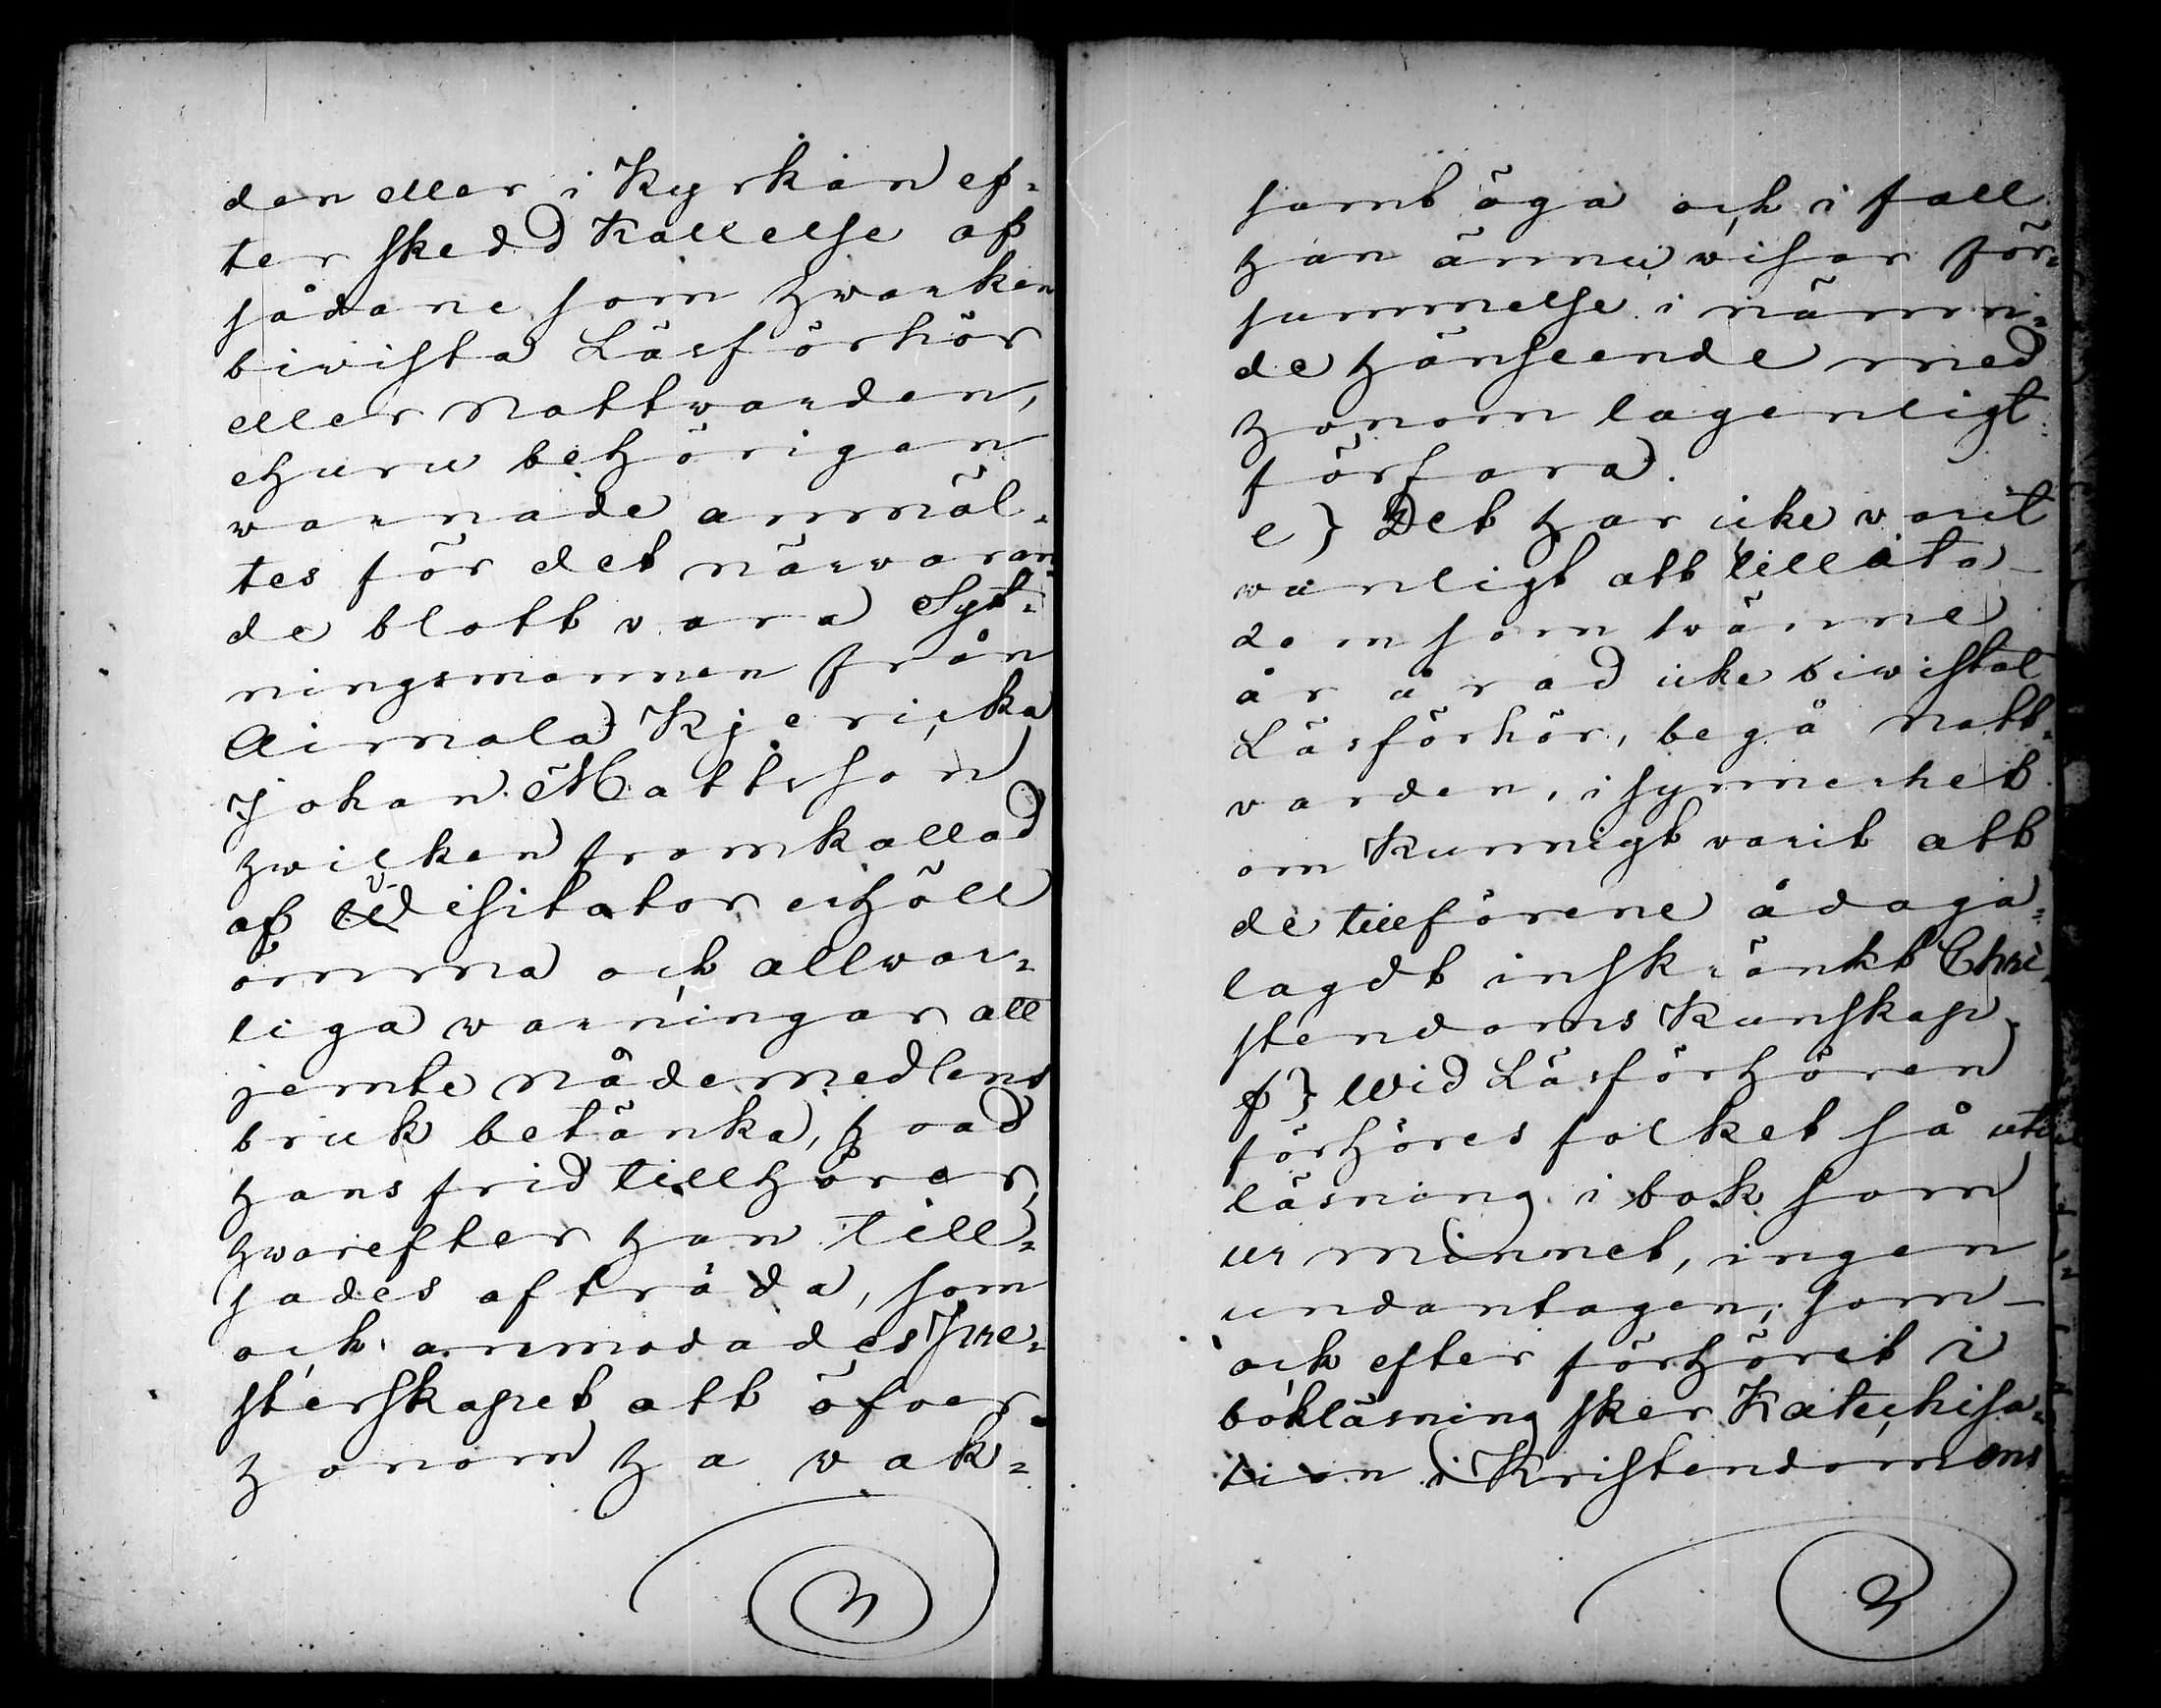 den eller i Kyrkan ef=
ter skedd Kallelse af
sådane som hwarken
biwista Läsförhör
eller Nattwarden,
ehuru behörigen
warnade anmäl=
tes för det närwaran=
de blott vara Syt=
ningsmannen från
Airnala Kjericka
Johan Mattsson
hwilken framkallad
af Visitator erhöll
ömma och allwar=
liga warningar att
jemte nådemedlens
bruk betänka, hvad
hans frid tillhörer,
hwarefter han till=
sades afträda, som
ock anmodades Pre=
sterskapet att öfver
honom ha vak=
samt öga och i fall
han ännu wisar för=
summelse i nämn=
de hänseende med
honom lagenligt
förfara.
e) Det har icke varit
wanligt att tillåta
dem som twänne
år å rad icke biwistat
Läsförhör, begå Natt=
varden, i synnerhet
om Kunnigt varit att
de tillförene ådaga=
lagdt inskränkt Chri=
stendoms Kunskap.
f) Wid Läsförhören
förhöres folket så uti
läsning i bok som
ur minnet, ingen
undantagen, som
ock efter förhöret i
bokläsning sker Katechisa=
tion i Kristendomens